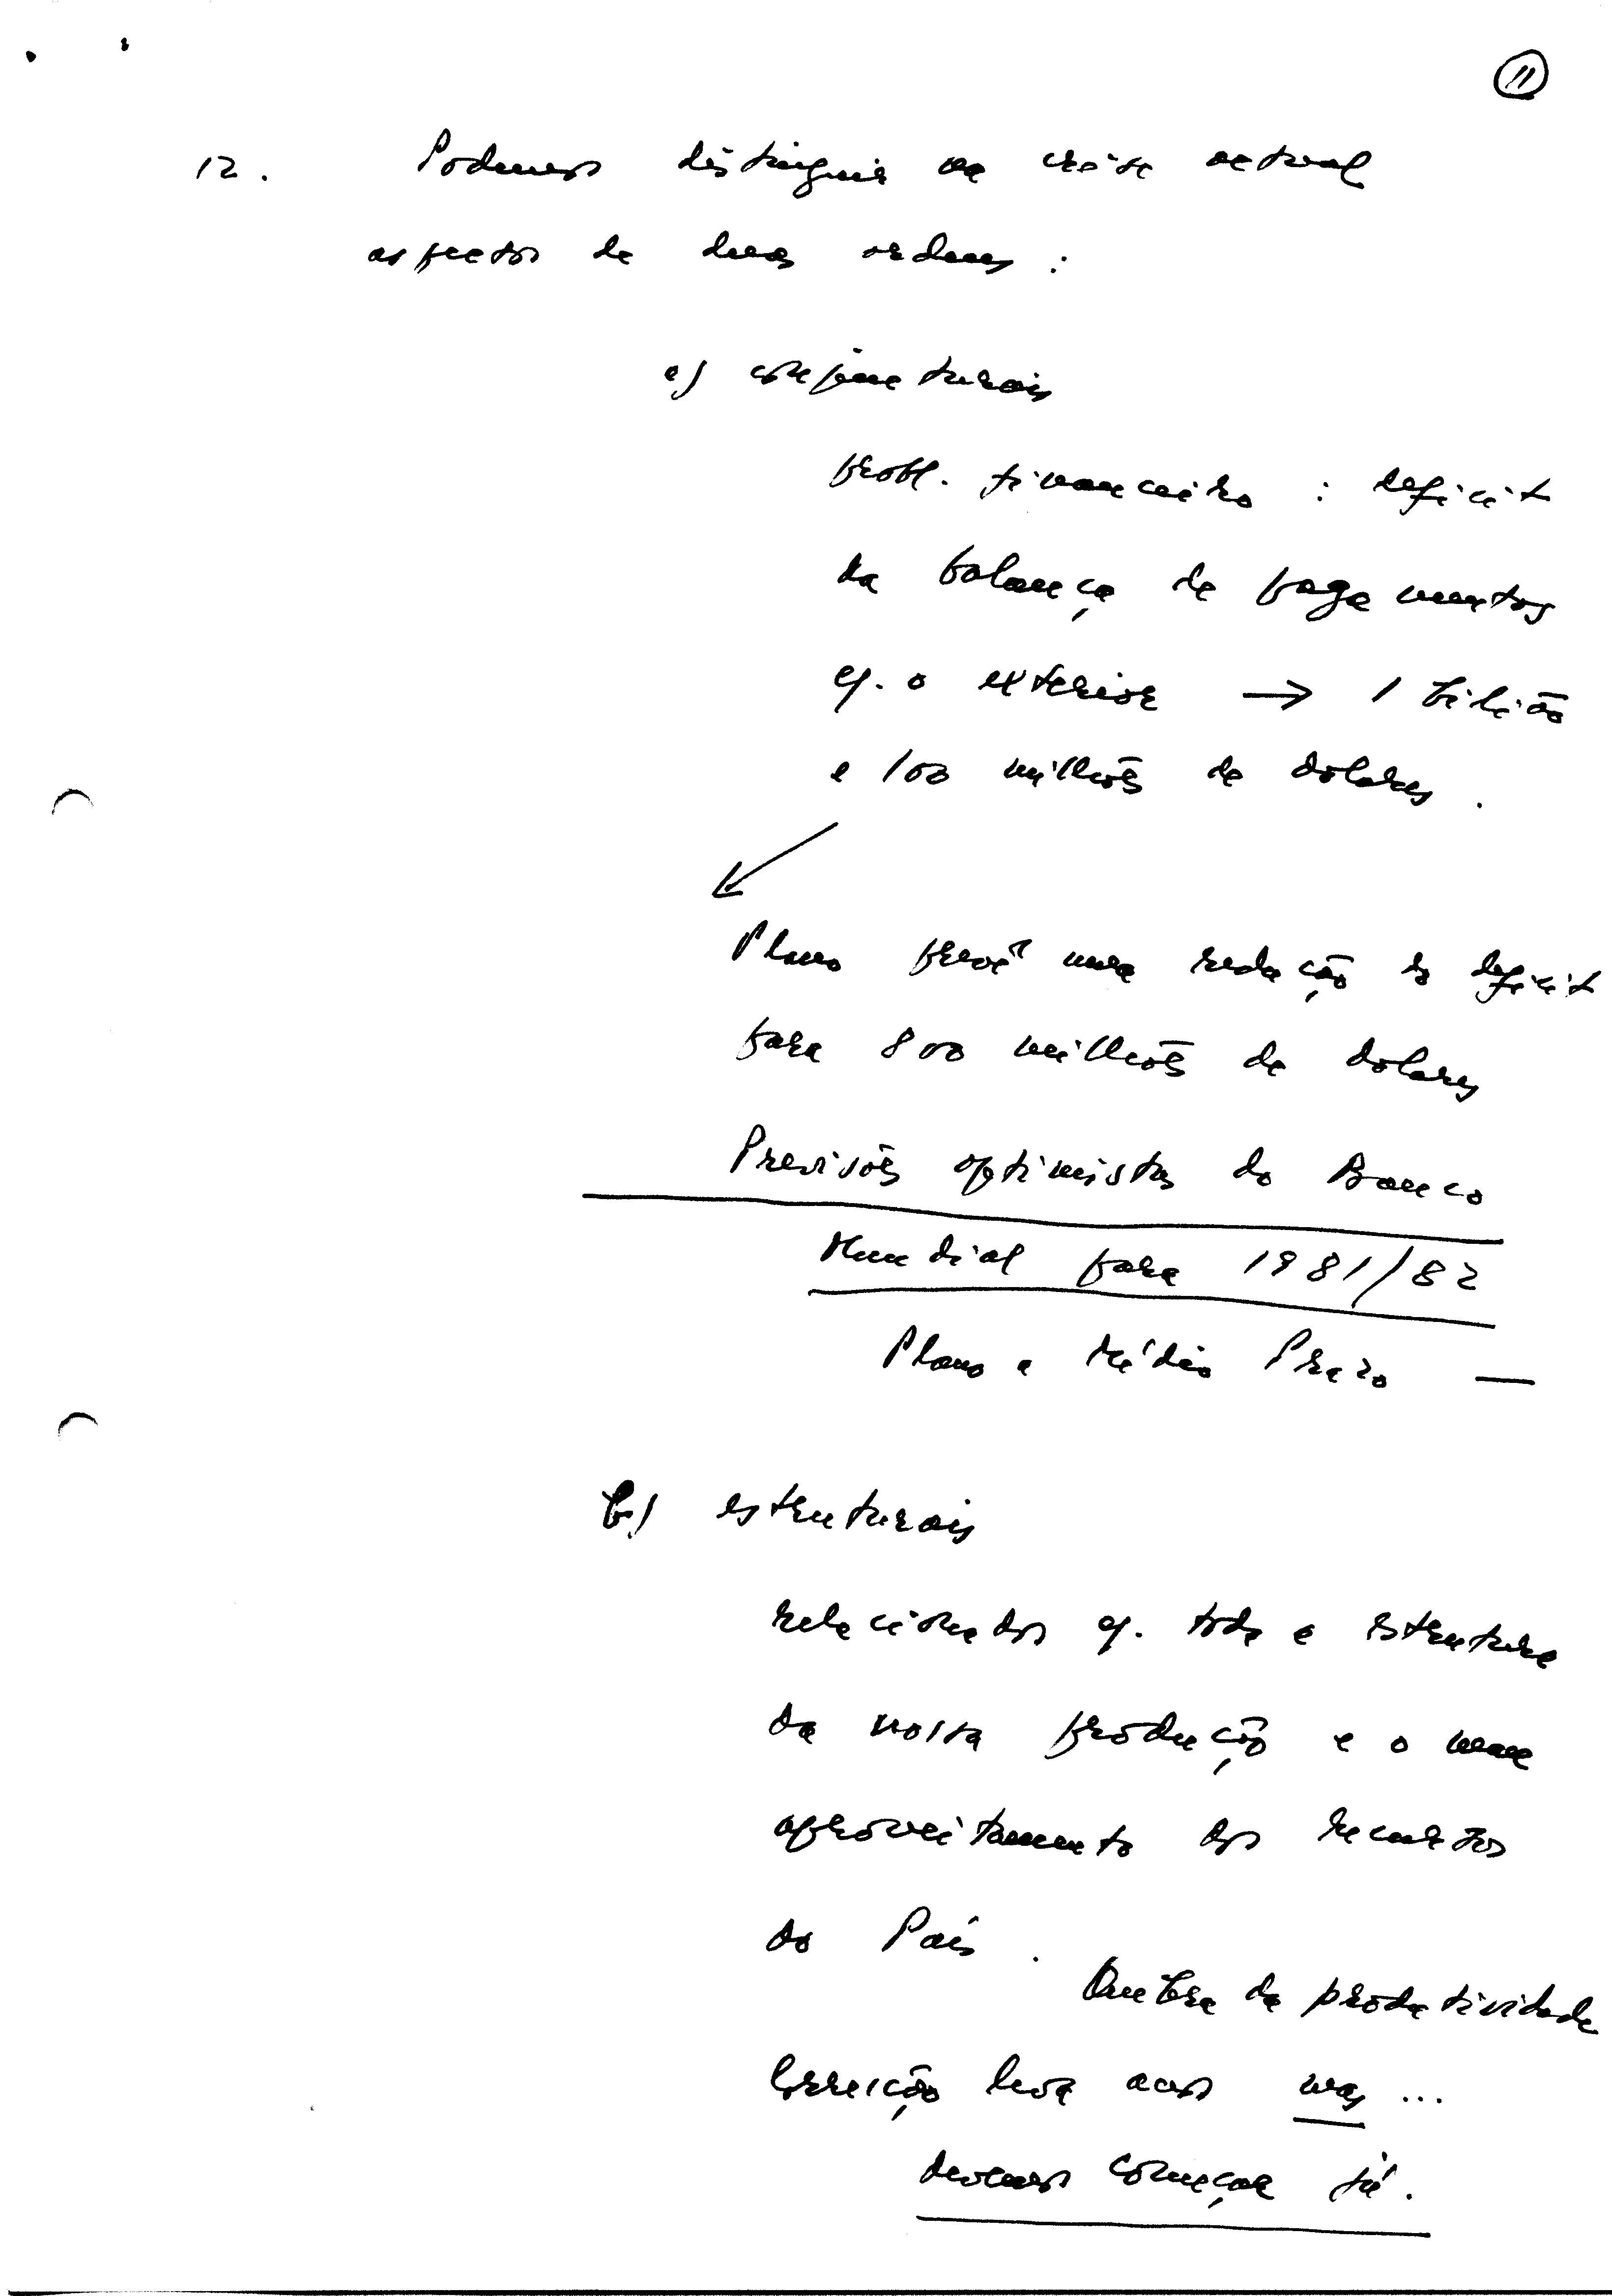 11
12. Podemos distinguir na crise actual
aspectos de duas ordens :
a) conjunturais
probl. financeiro : deficit
da balança de pagamentos
c/. o exterior → 1 bilião
e 100 milhões de dolares .
Plano prevê uma redução do deficit
para 800 milhões de dolares
Previsões optimistas do Banco
Mundial para 1981/82
Plano a Médio Prazo —
b) estruturais
relacionados c/. toda a estrutura
da nossa produção e o mau
aproveitamento dos recursos
do País .
Quebra da produtividade
Correcção leva anos mas ...
devemos começar já .